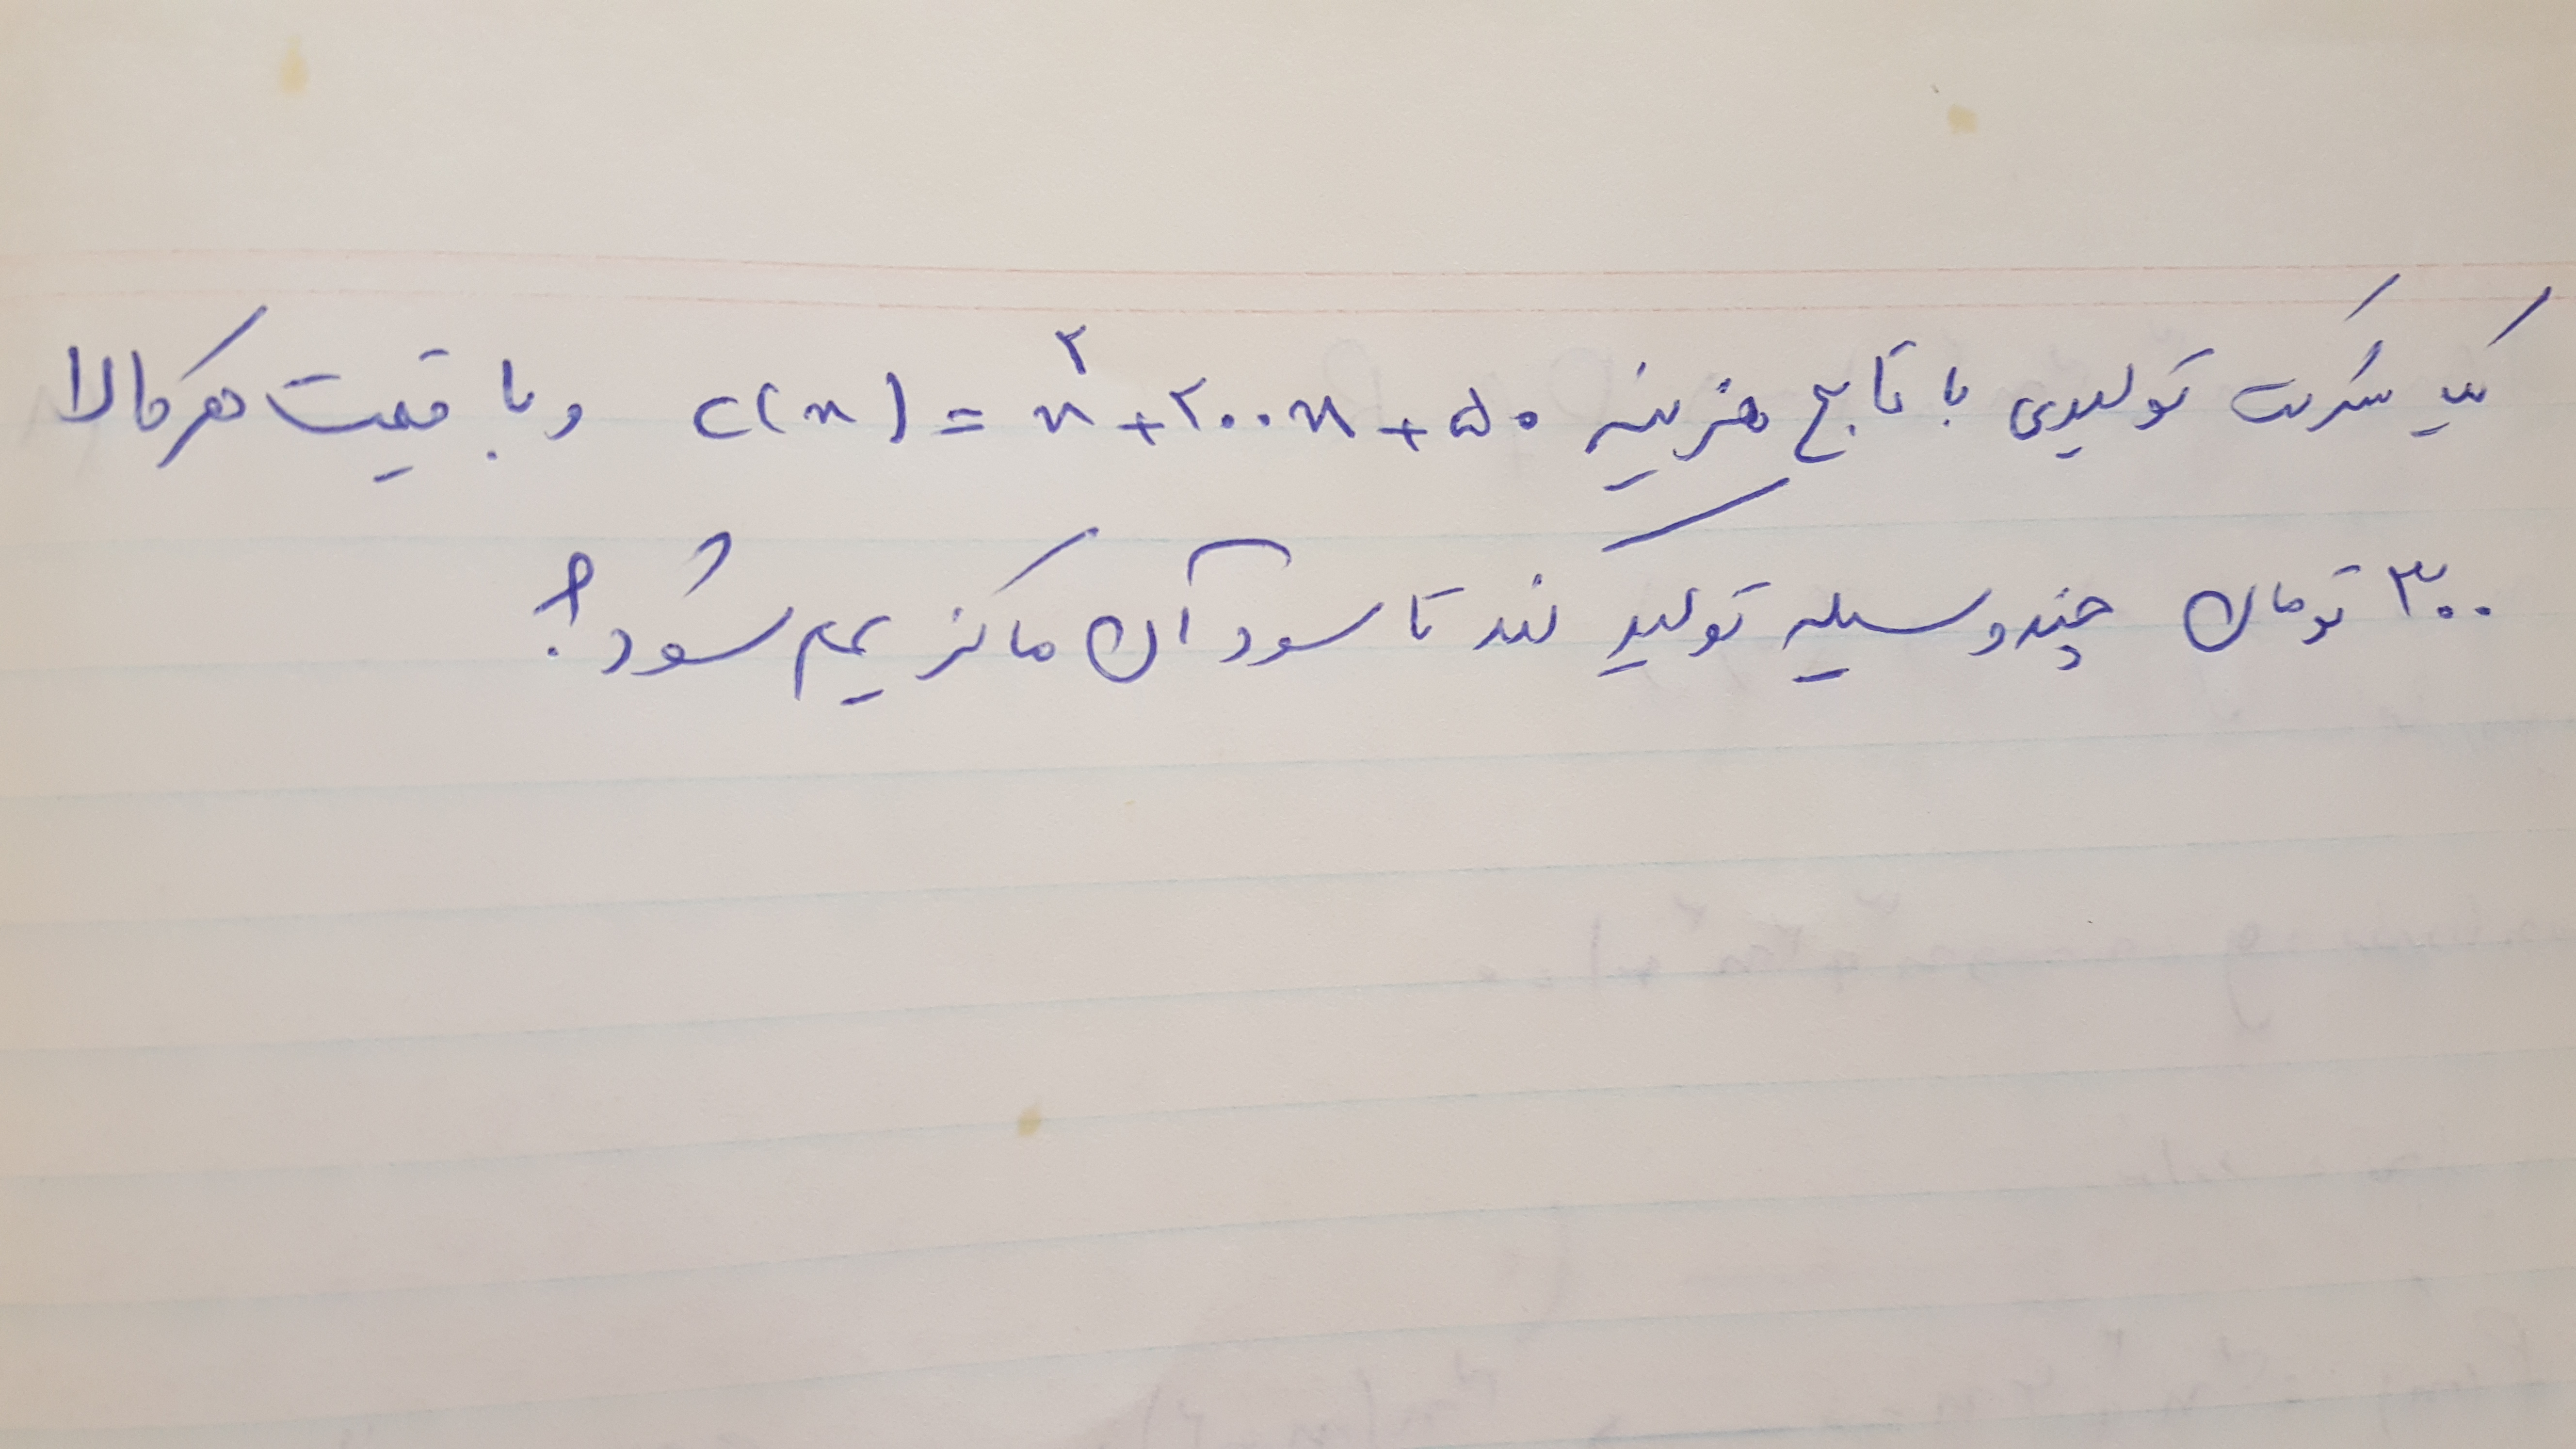 یک شرکت تولیدی با تابع هزینه C(x) = x² + ۲۰۰x + ۵۰ و با قیمت هر کالا
۳۰۰ تومان چند وسیله تولید کند تا سود آن ماکزیمم شود؟